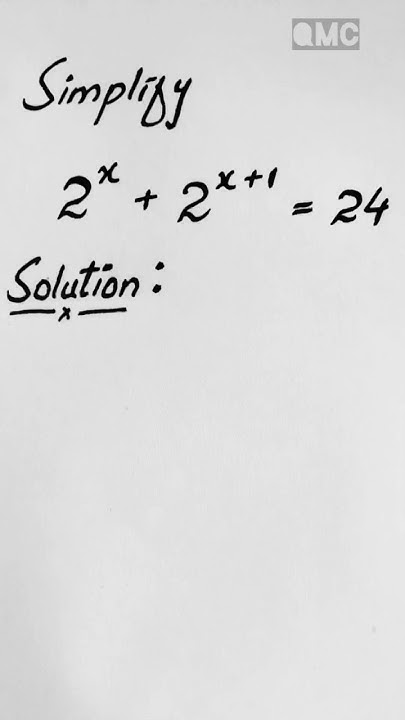 QMC
Simplify
2ˣ + 2ˣ⁺¹ = 24
Solution :
x